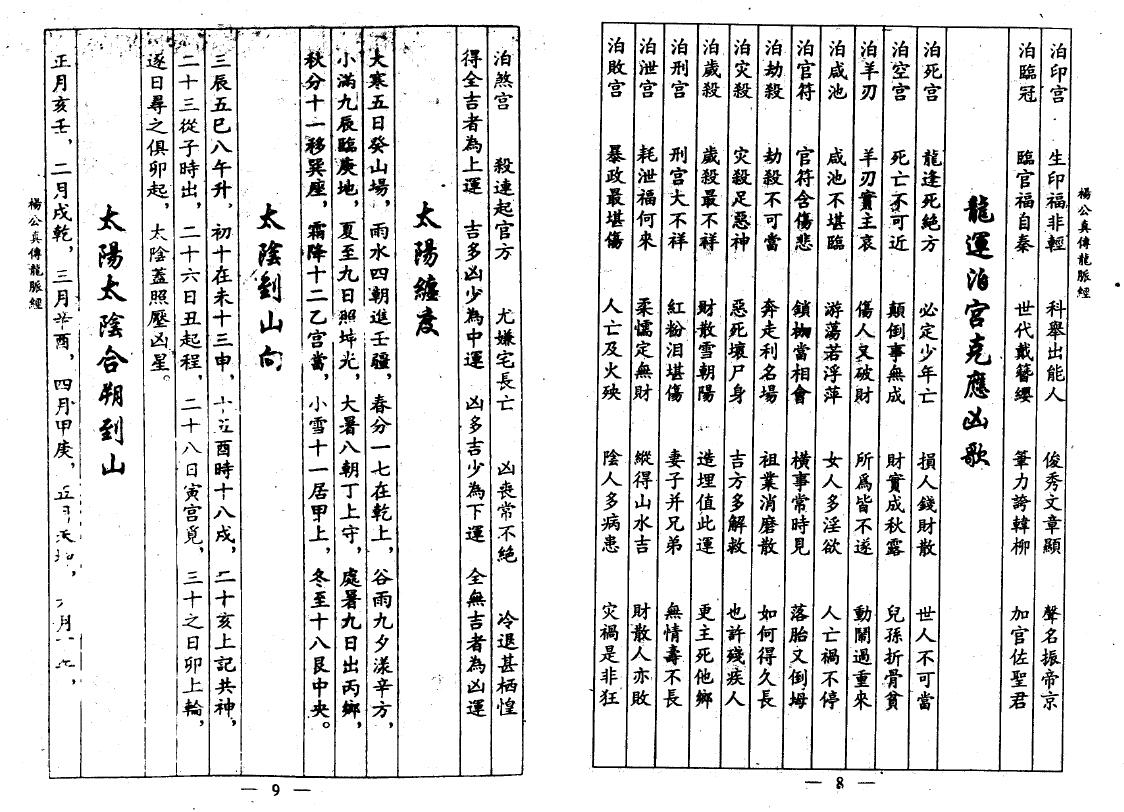 楊公真傳龍脈經
泊印宮 生印福非輕 科舉出能人 俊秀文章顯 聲名振帝京
泊臨冠 臨官福自泰 世代戴簪纓 筆力誇韓柳 加官佐聖君
龍運泊宮克應凶歌
泊死宮 龍逢死絕方 必定少年亡 損人錢財散 世人不可當
泊空宮 死亡不可近 顛倒事無成 財實成秋露 兒孫折骨貧
泊羊刃 羊刃實主哀 傷人又破財 所爲皆不遂 動鬧過重來
泊咸池 咸池不堪臨 游蕩若浮萍 女人多淫欲 人亡禍不停
泊官符 官符含傷悲 鎖枷當相會 橫事常時見 落胎又倒姆
泊劫殺 劫殺不可當 奔走利名場 祖業消磨散 如何得久長
泊灾殺 灾殺足惡神 惡死壞尸身 吉方多解救 也許殘疾人
泊歲殺 歲殺最不祥 財散雪朝陽 造埋值此運 更主死他鄉
泊刑宮 刑宮大不祥 紅粉泪堪傷 妻子并兄弟 無情壽不長
泊泄宮 耗泄福何來 柔懦定無財 縱得山水吉 財散人亦敗
泊敗宮 暴政最堪傷 人亡及火殃 陰人多病患 灾禍是非狂
— 8 —
泊煞宮 殺連起官方 尤嫌宅長亡 凶喪常不絕 冷退甚栖惶
得全吉者為上運 吉多凶少為中運 凶多吉少為下運 全無吉者為凶運
太陽纏度
大寒五日癸山場，雨水四朝進壬疆，春分一七在乾上，谷雨九夕漾辛方，
小滿九辰臨庚地，夏至九日照坤光，大暑八朝丁上守，處暑九日出丙鄉，
秋分十一移巽座，霜降十二乙宮當，小雪十一居甲上，冬至十八艮中央。
太陰到山向
三辰五巳八午升，初十在未十三申，十五酉時十八戌，二十亥上記共神，
二十三從子時出，二十六日丑起程，二十八日寅宮覓，三十之日卯上輪，
逐日尋之俱卯起，太陰蓋照壓凶星。
太陽太陰合朔到山
正月亥壬，二月戌乾，三月辛酉，四月甲庚，五月
楊公真傳龍脈經
— 9 —